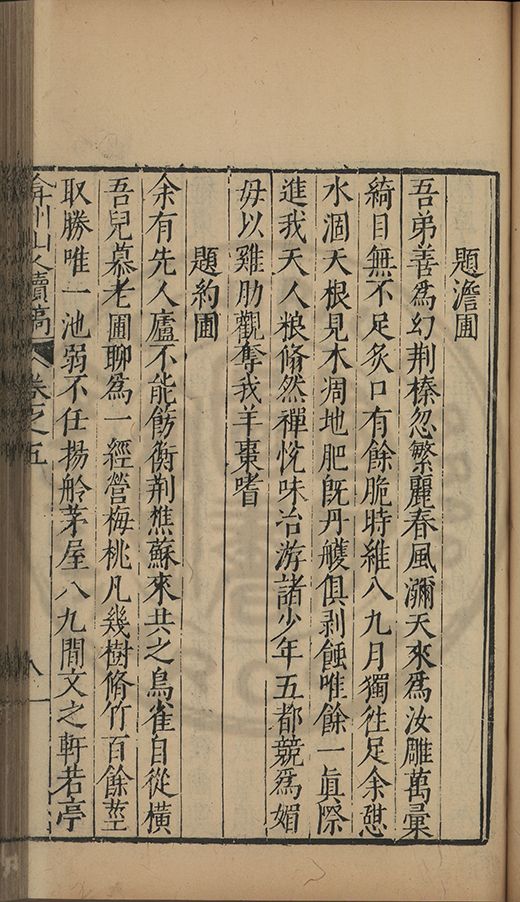 題澹圃
吾弟善爲幻荆榛忽繁麗春風瀰天來爲汝雕萬彙
綺目無不足炙口有餘脆時維八九月獨往足余憇
水涸天根見木凋地肥既丹艧俱剥蝕唯餘一眞際
進我天人粻翛然禪悦味冶游諸少年五都競爲媚
毋以雞肋觀奪我羊棗嗜
題約圃
余有先人廬不能飭衡荆樵蘇來共之鳥雀自從横
吾兒慕老圃聊爲一經營梅桃凡幾樹脩竹百餘莖
取勝唯一池弱不任揚舲茅屋八九間文之軒若亭
弇州山人續稿 卷之五 八